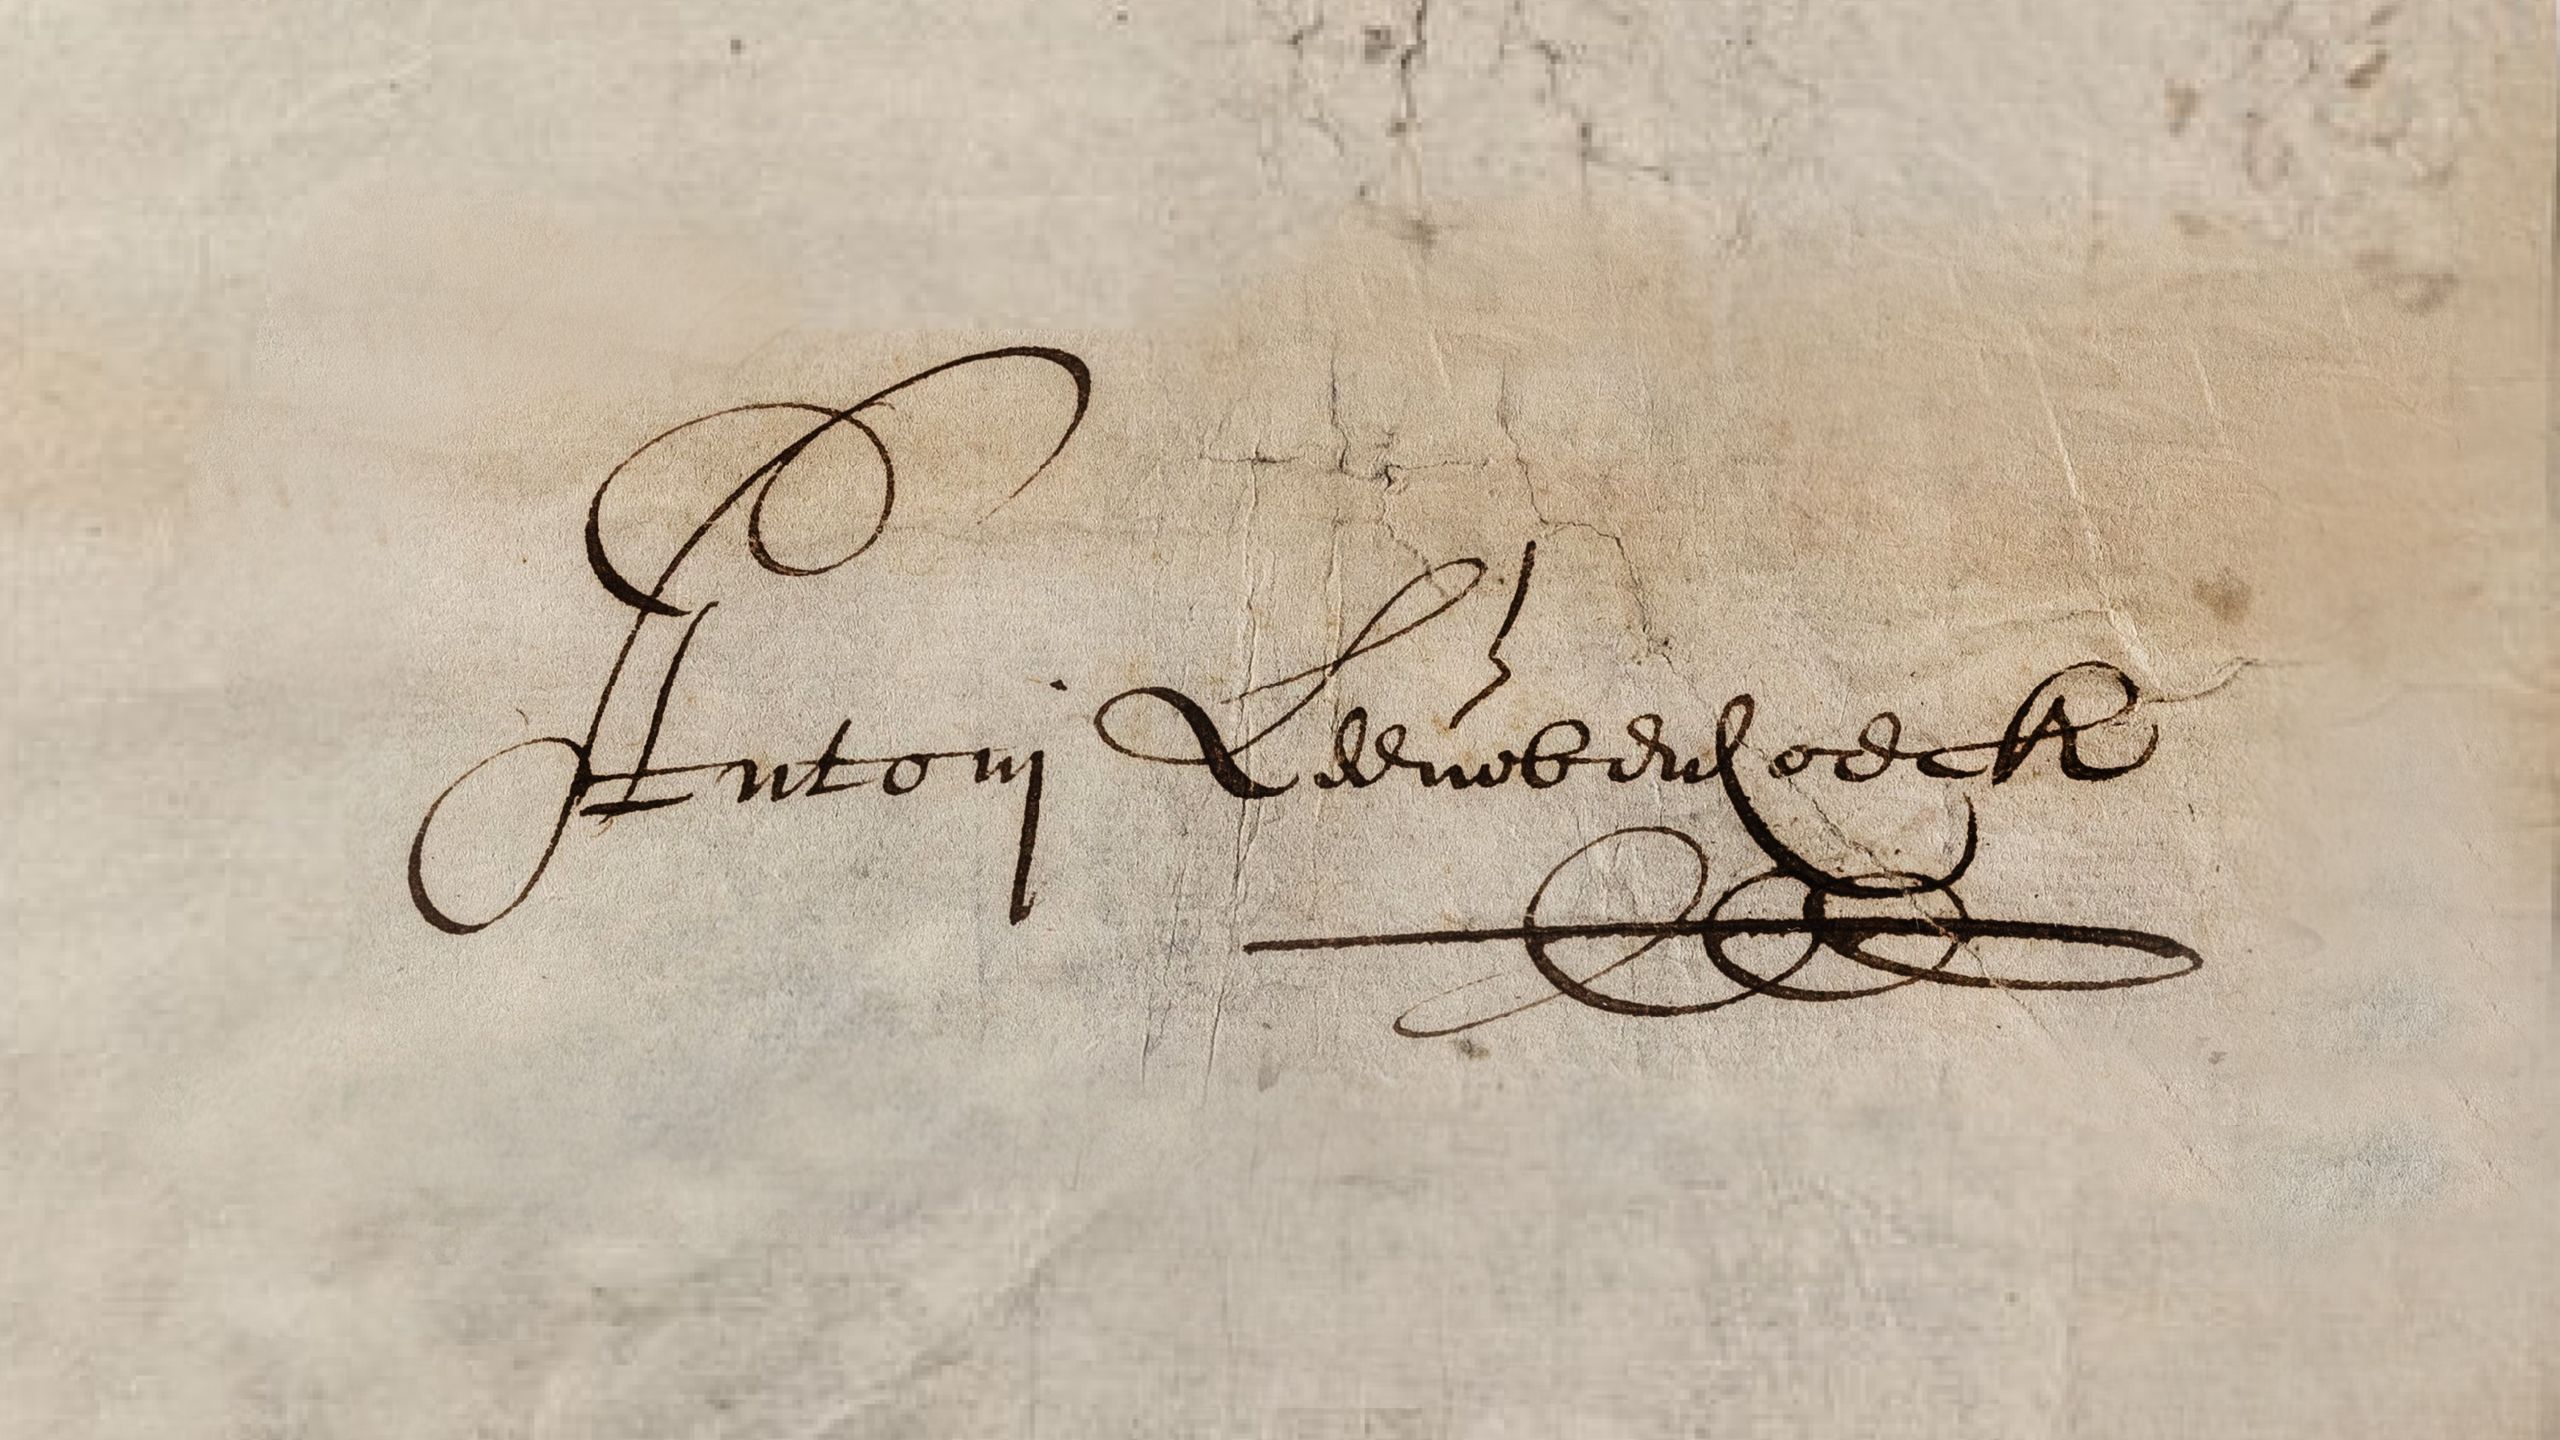 Antonj Leeuwenhoeck